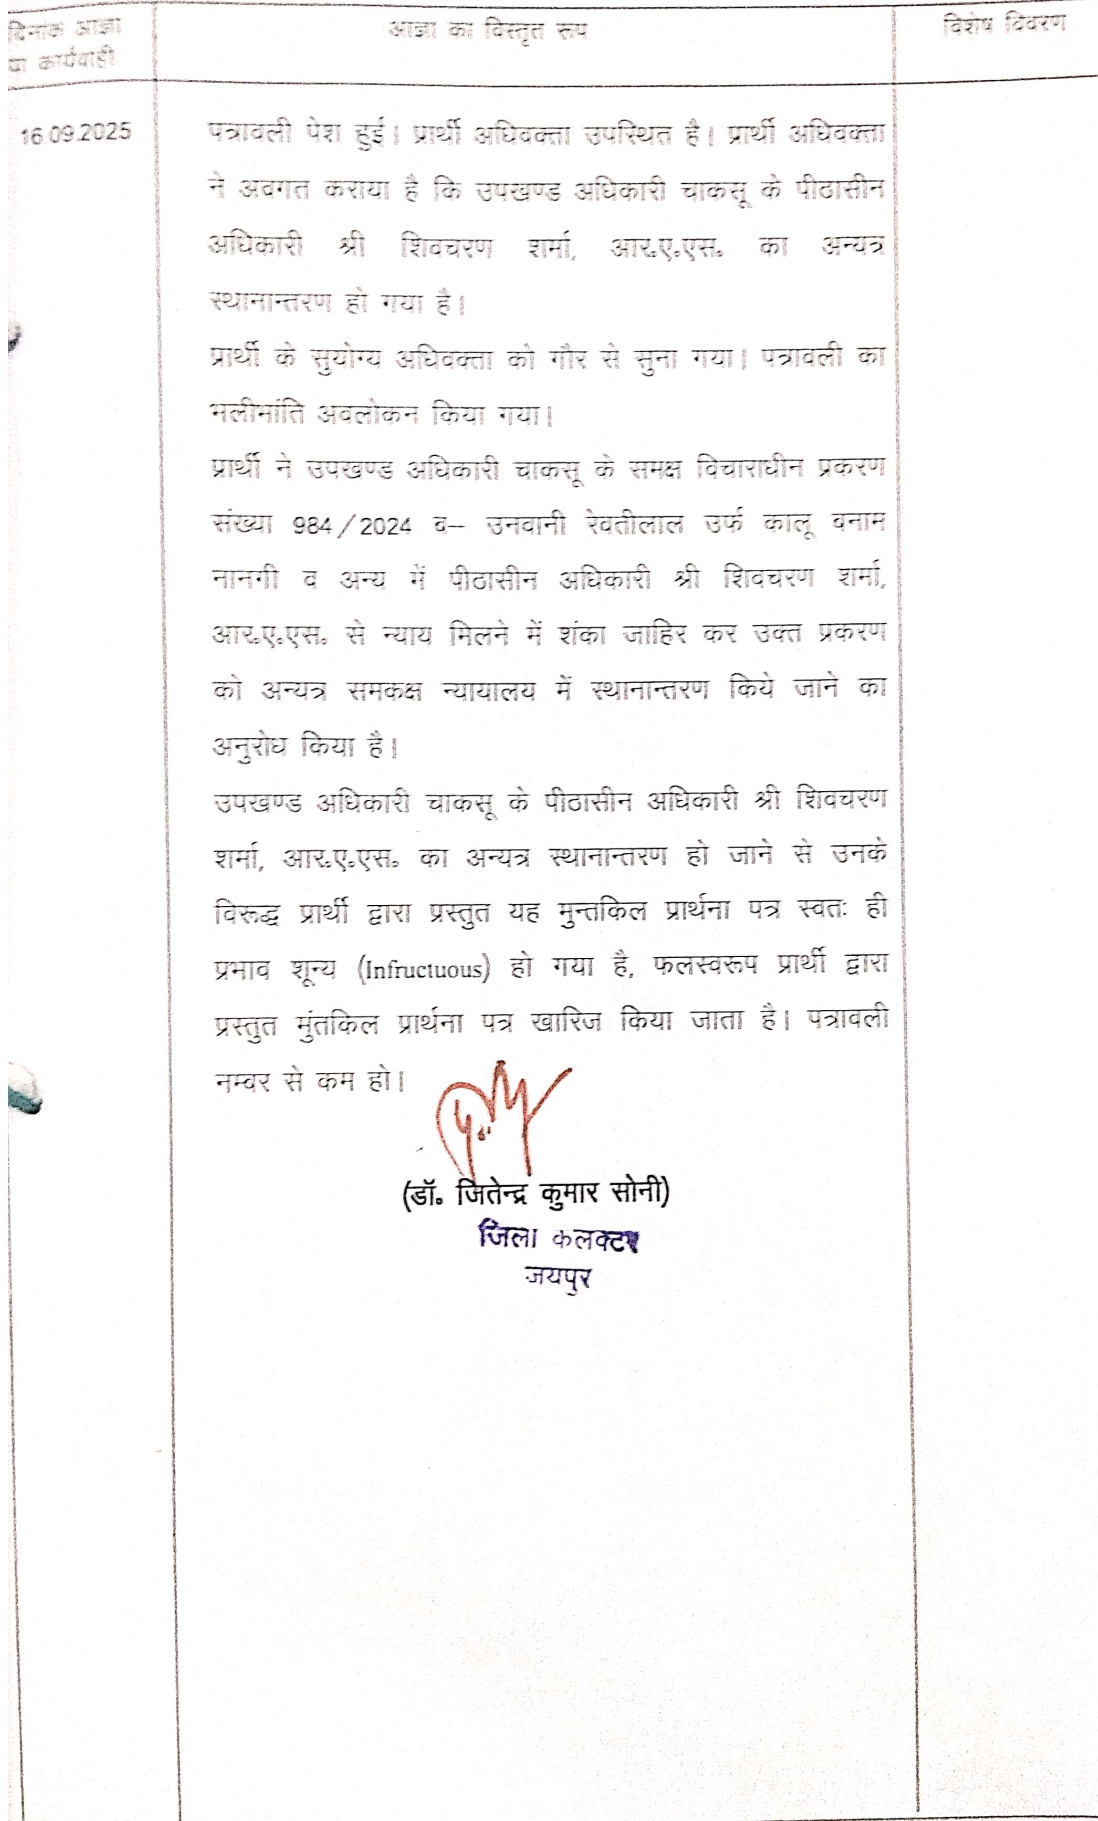 दिनांक आज्ञा
या कार्यवाही
आज्ञा का विस्तृत रूप
विशेष विवरण
16.09.2025
पत्रावली पेश हुई। प्रार्थी अधिवक्ता उपस्थित है। प्रार्थी अधिवक्ता
ने अवगत कराया है कि उपखण्ड अधिकारी चाकसू के पीठासीन
अधिकारी श्री शिवचरण शर्मा, आर.ए.एस. का अन्यत्र
स्थानान्तरण हो गया है।
प्रार्थी के सुयोग्य अधिवक्ता को गौर से सुना गया। पत्रावली का
भलीभांति अवलोकन किया गया।
प्रार्थी ने उपखण्ड अधिकारी चाकसू के समक्ष विचाराधीन प्रकरण
संख्या 984/2024 व– उनवानी रेवतीलाल उर्फ कालू बनाम
नानगी व अन्य में पीठासीन अधिकारी श्री शिवचरण शर्मा,
आर.ए.एस. से न्याय मिलने में शंका जाहिर कर उक्त प्रकरण
को अन्यत्र समकक्ष न्यायालय में स्थानान्तरण किये जाने का
अनुरोध किया है।
उपखण्ड अधिकारी चाकसू के पीठासीन अधिकारी श्री शिवचरण
शर्मा, आर.ए.एस. का अन्यत्र स्थानान्तरण हो जाने से उनके
विरूद्ध प्रार्थी द्वारा प्रस्तुत यह मुन्तकिल प्रार्थना पत्र स्वतः ही
प्रभाव शून्य (Infructuous) हो गया है, फलस्वरूप प्रार्थी द्वारा
प्रस्तुत मुंतकिल प्रार्थना पत्र खारिज किया जाता है। पत्रावली
नम्बर से कम हो।
(डॉ. जितेन्द्र कुमार सोनी)
जिला कलक्टर
जयपुर